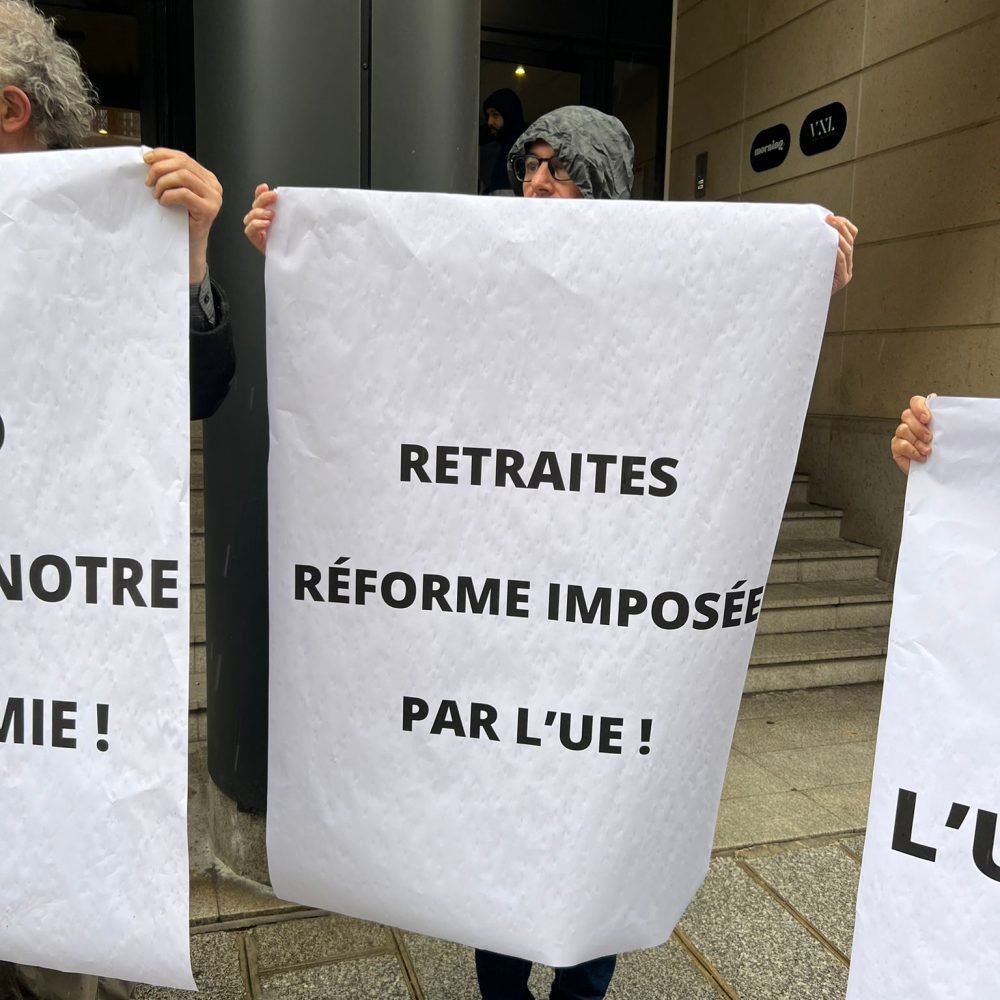 NOTRE
MIE !
RETRAITES
RÉFORME IMPOSÉE
PAR L’UE !
morning.
VXL